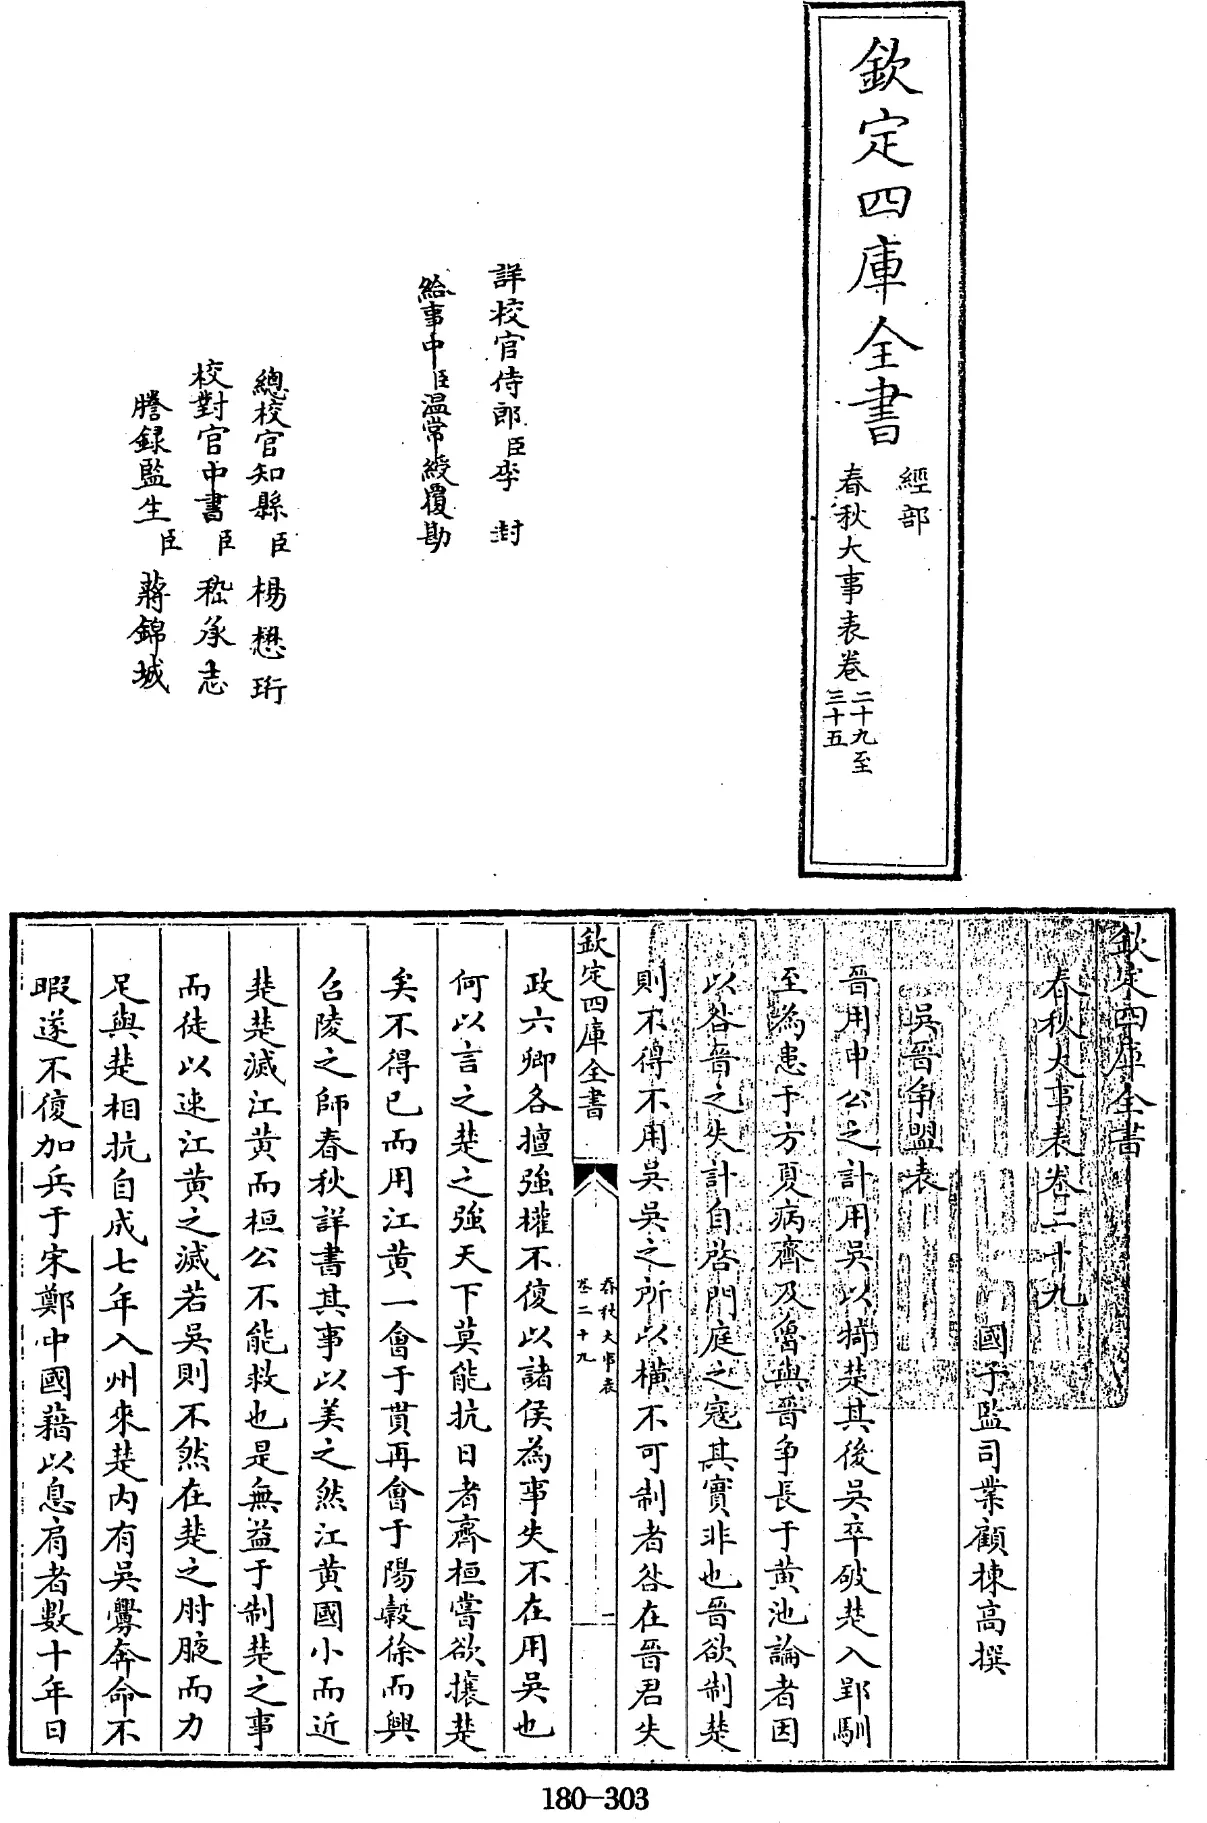 欽定四庫全書
經部
春秋大事表卷二十九至
三十五
詳校官侍郎臣李封
給事中臣温常綬覆勘
總校官知縣臣楊懋珩
校對官中書臣嵇承志
謄録監生臣蔣錦城
欽定四庫全書
春秋大事表卷二十九
國子監司業顧棟高撰
吳晉爭盟表
晉用申公之計用吳以犄楚其後吳卒破楚入郢馴
至為患于方夏病齊及魯與晉爭長于黄池論者因
以咎晉之失計自啓門庭之寇其實非也晉欲制楚
則不得不用吳吳之所以横不可制者咎在晉君失
欽定四庫全書
春秋大事表
卷二十九
二
政六卿各擅強權不復以諸侯為事失不在用吳也
何以言之楚之強天下莫能抗日者齊桓嘗欲攘楚
矣不得已而用江黄一會于貫再會于陽穀徐而興
召陵之師春秋詳書其事以美之然江黄國小而近
楚楚滅江黄而桓公不能救也是無益于制楚之事
而徒以速江黄之滅若吳則不然在楚之肘腋而力
足與楚相抗自成七年入州來楚内有吳釁奔命不
暇遂不復加兵于宋鄭中國藉以息肩者數十年日
180-303